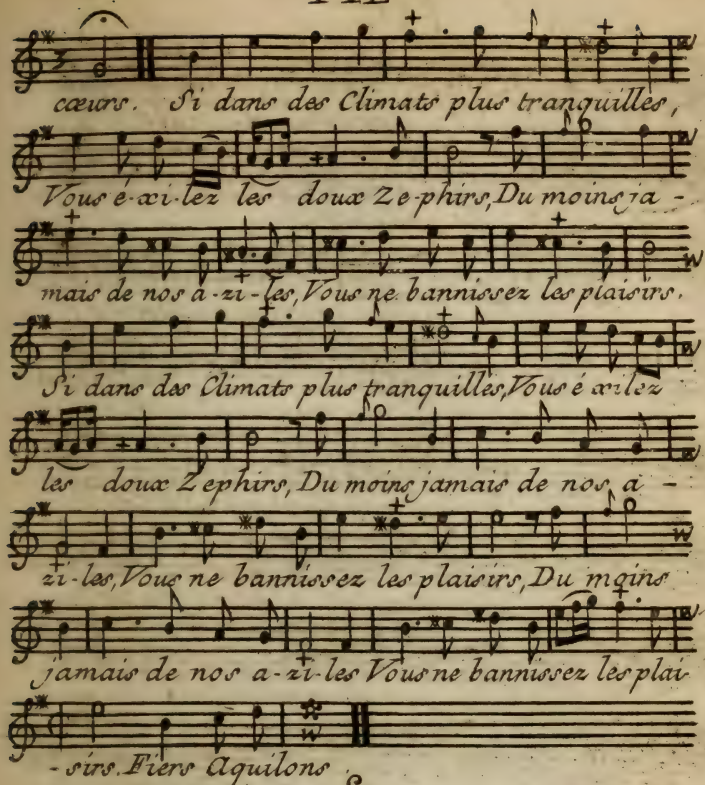 cœurs. Si dans des Climats plus tranquilles,
Vous é-xi-lez les doux Ze-phirs, Du moins ja -
mais de nos a-zi-les, Vous ne bannissez les plaisirs.
Si dans des Climats plus tranquilles, Vous é xilez
les doux Zephirs, Du moins jamais de nos a -
zi-les, Vous ne bannissez les plaisirs, Du moins
jamais de nos a-zi-les Vous ne bannissez les plai
- sirs. Fiers Aquilons